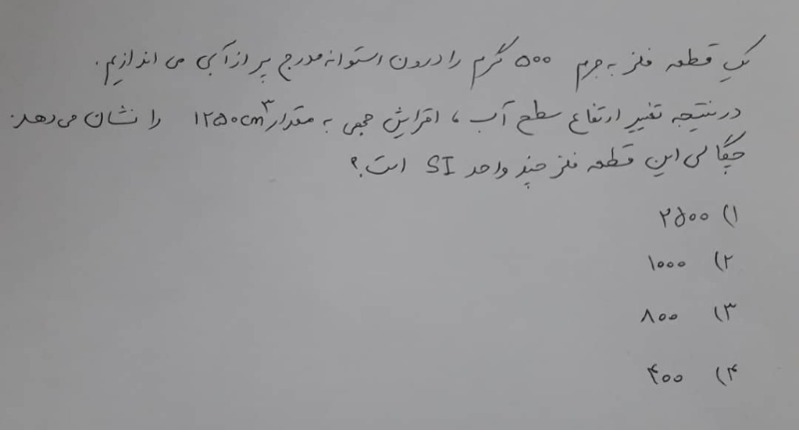 یک قطعه فلز به جرم ۵۰۰ گرم را درون استوانه مدرج پر از آبی می اندازیم.
در نتیجه تغییر ارتفاع سطح آب، افزایش حجمی به مقدار ۱۲۵۰cm³ را نشان می دهد.
چگالی این قطعه فلز چند واحد SI است؟
۱) ۲۵۰۰
۲) ۱۰۰۰
۳) ۸۰۰
۴) ۴۰۰